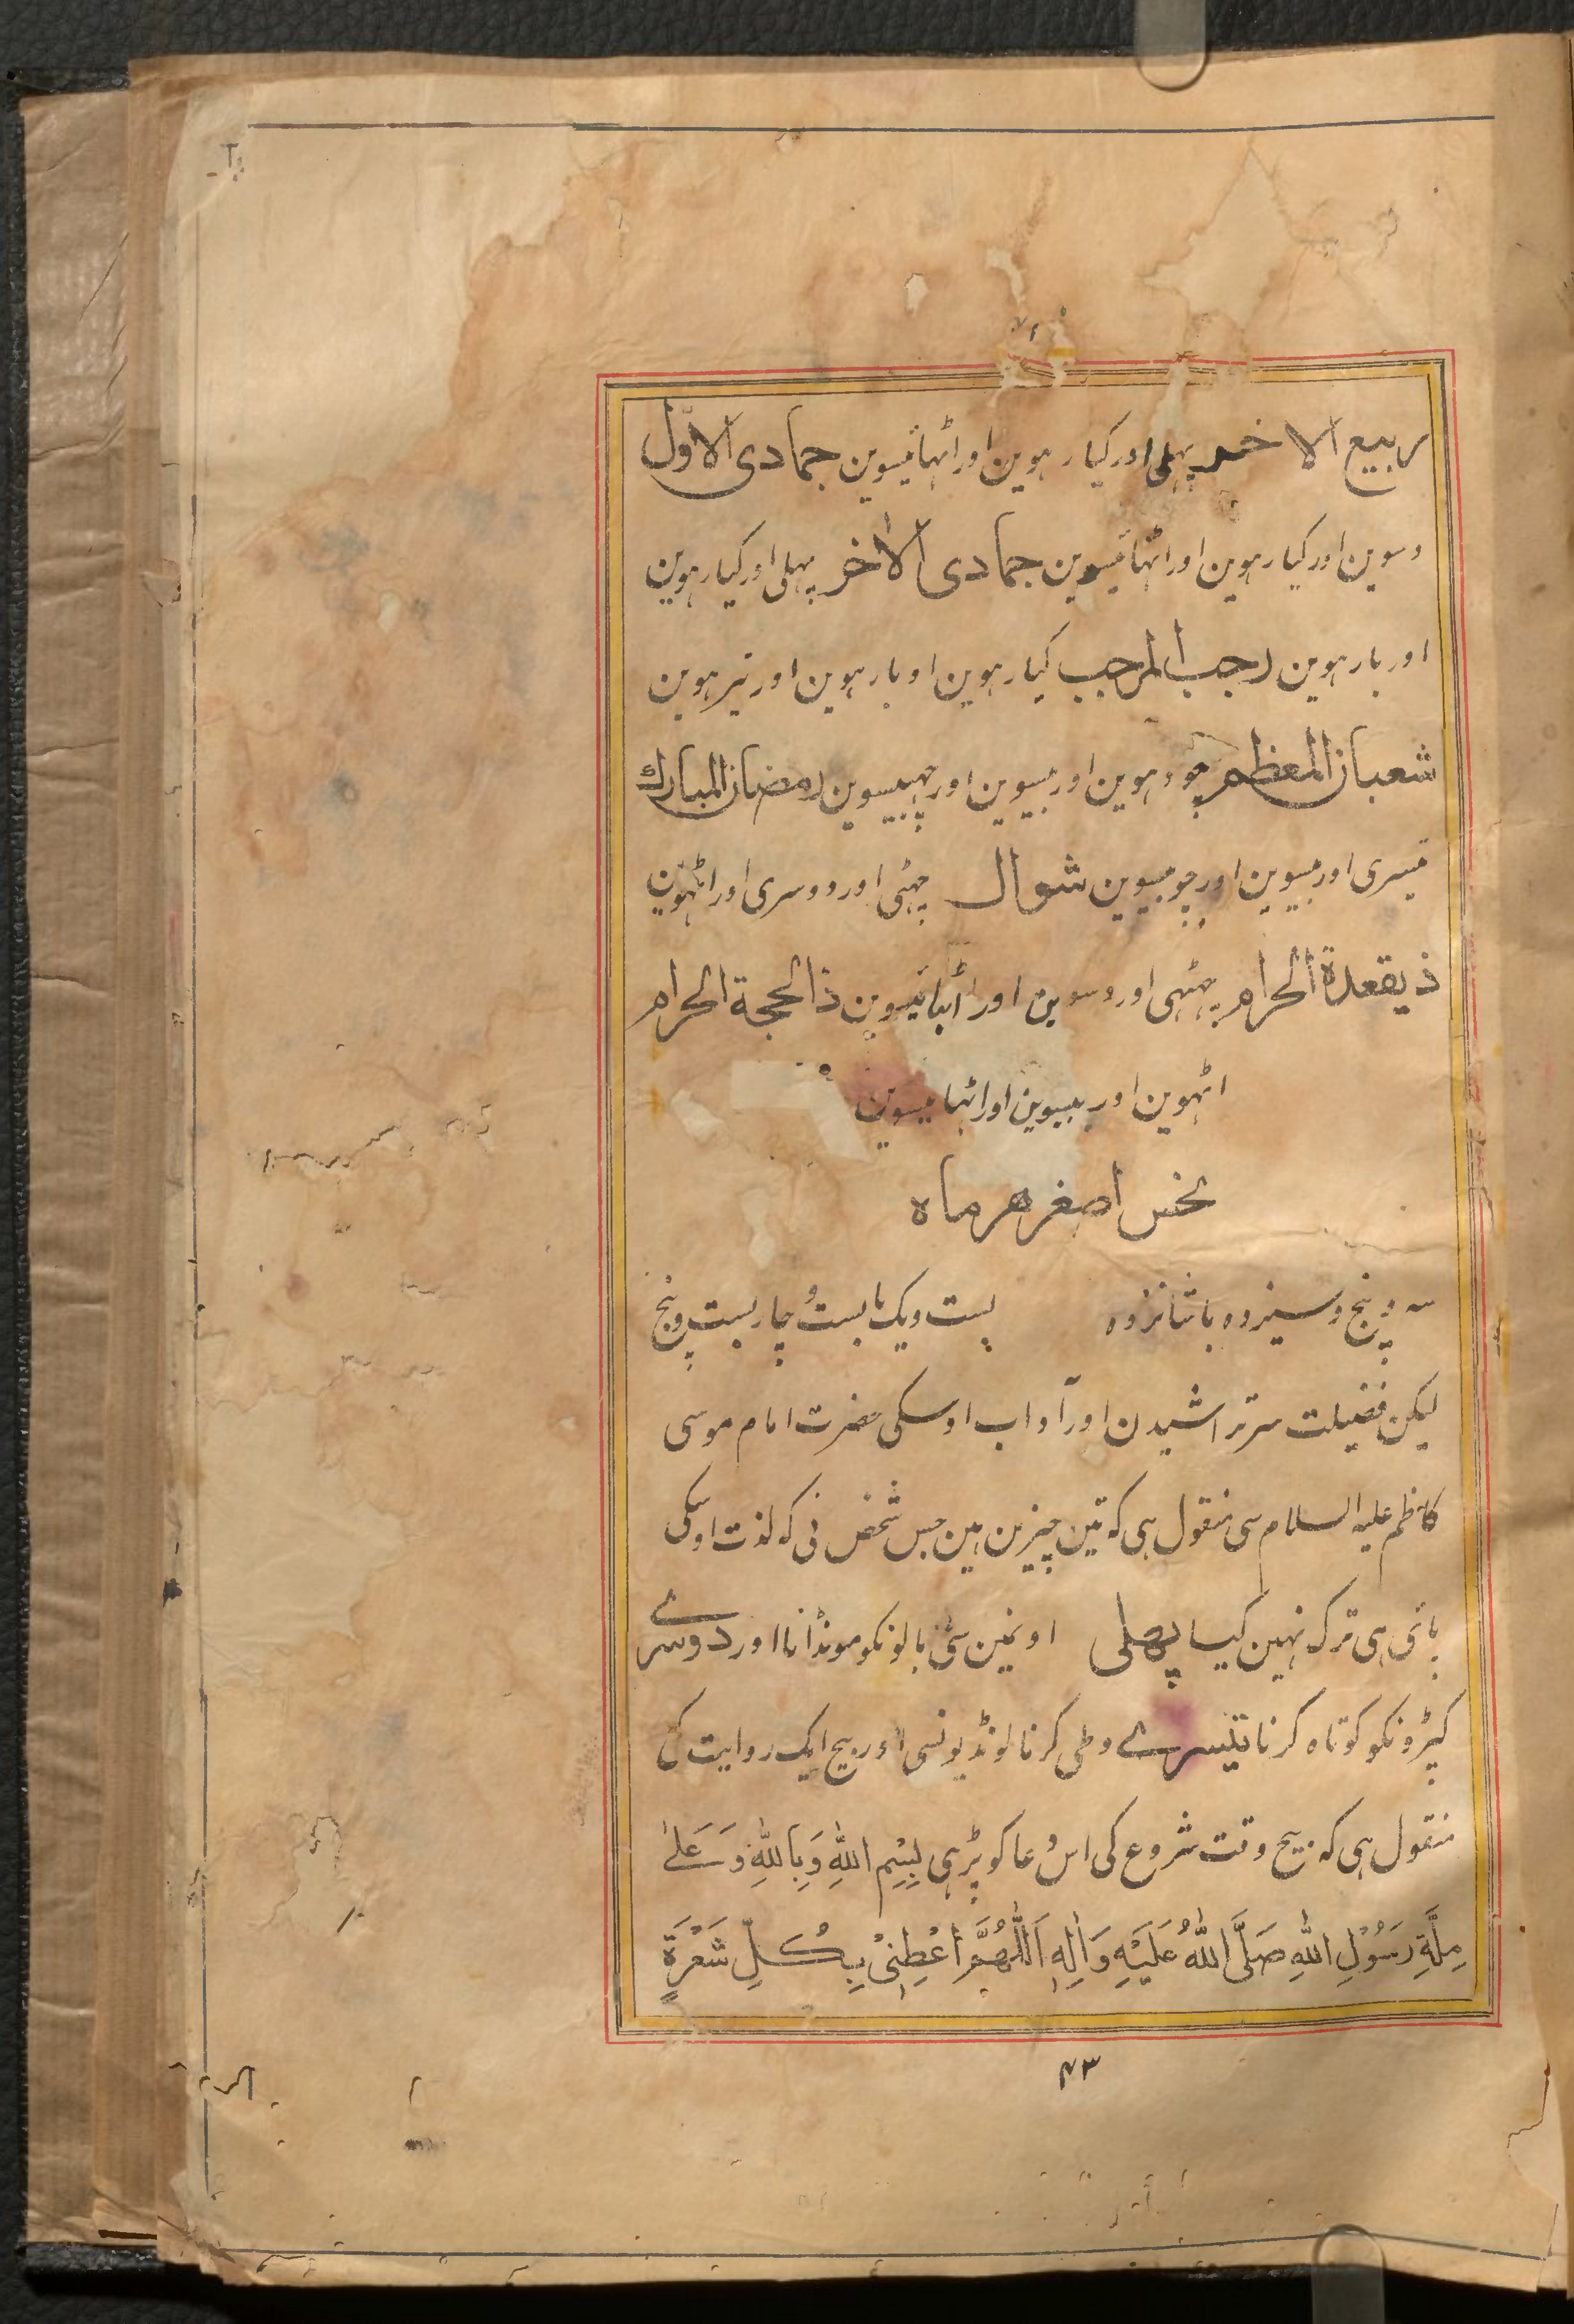 ربیع الاخر پہلی اور کیارہوین اور اٹہائیسوین جمادی الاوّل
دسوین اور کیارہوین اور اٹہائیسوین جمادی الاخر پہلی اور کیارہوین
اور بارہوین رجب المرجب کیارہوین او بارہوین اور تیرہوین
شعبان المعظم چودہوین اور بیسوین اور چہبیسوین رمضان المبارك
تیسری اور بیسوین اور چوبیسوین شوال چہٹی اور دوسری اور اٹہوین
ذیقعدة الحرام چہٹہی اور دسوین اور اٹہائیسوین ذالحجة الحرام
اٹہوین اور بیسوین اور اٹہائیسوین
نحس اصغر هر ماه
سہ و پنج و سیزدہ با شانزدہ بست و یک با بست و چار بست و پنج
لیکن فضیلت سر تراشیدن اور آداب اوسکی حضرت امام موسی
کاظم علیہ السلام سی منقول ہی کہ تین چیزین ہین جس شخص نی کہ لذت اوسکی
پائی ہی ترک نہین کیا پهلی اونمین سی بالونکو مونڈانا اور دوسرے
کپڑونکو کوتاہ کرنا تیسرے وطی کرنا لونڈیونسی اور بیچ ایک روایت کی
منقول ہی کہ بیچ وقت شروع کی اس دعا کو پڑہی بِسْمِ اللهِ وَبِاللهِ وَعَلىٰ
مِلَّةِ رَسُوْلِ اللهِ صَلَّى اللهُ عَلَيْهِ وَاٰلِهٖ اَللّٰهُمَّ اَعْطِنِيْ بِكُلِّ شَعْرَةٍ
۴۳